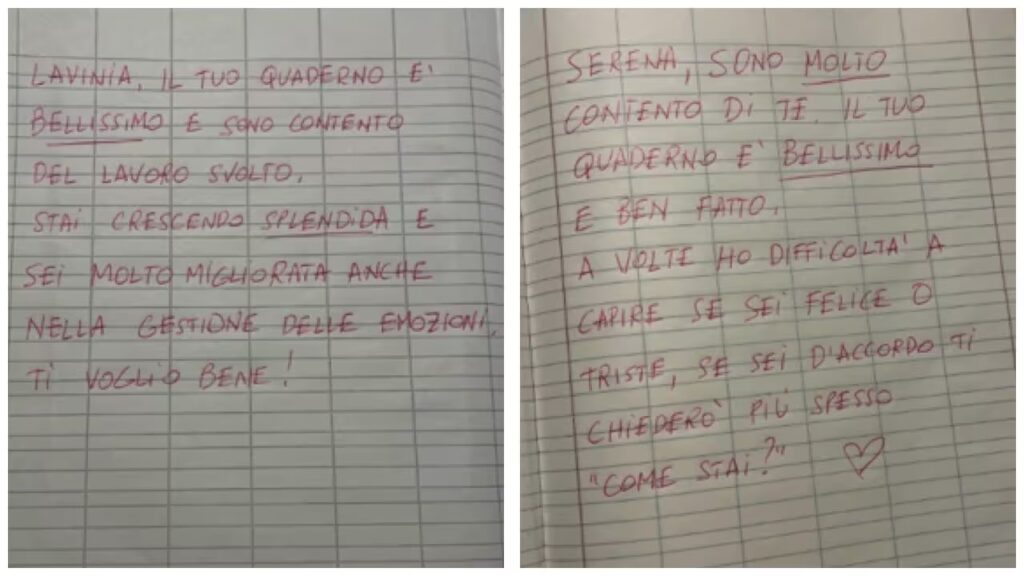 LAVINIA, IL TUO QUADERNO E'
BELLISSIMO E SONO CONTENTO
DEL LAVORO SVOLTO.
STAI CRESCENDO SPLENDIDA E
SEI MOLTO MIGLIORATA ANCHE
NELLA GESTIONE DELLE EMOZIONI.
TI VOGLIO BENE!
SERENA, SONO MOLTO
CONTENTO DI TE. IL TUO
QUADERNO E' BELLISSIMO
E BEN FATTO.
A VOLTE HO DIFFICOLTA' A
CAPIRE SE SEI FELICE O
TRISTE, SE SEI D'ACCORDO TI
CHIEDERO' PIÙ SPESSO
"COME STAI?" ♡